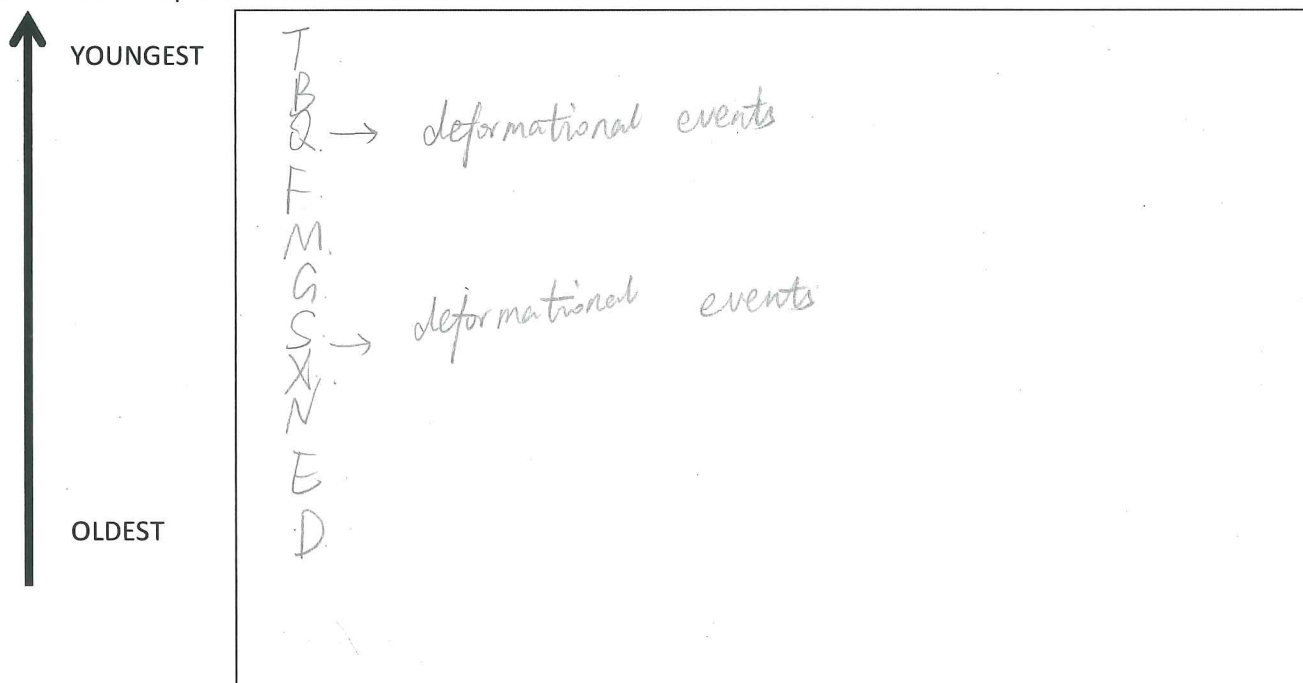 YOUNGEST
T
B
Q. → deformational events
F.
M.
G.
S. → deformational events
X.
N
E
OLDEST
D.